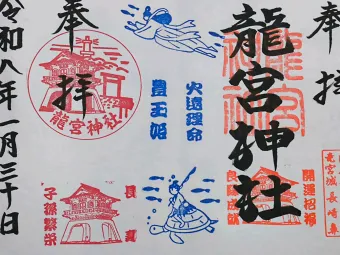 奉拝
龍宮神社
火遠理命
豊玉姫
奉拝
龍宮神社
開運招福
良縁成就
子孫繁栄
龍宮城 長崎鼻
令和八年一月三十日